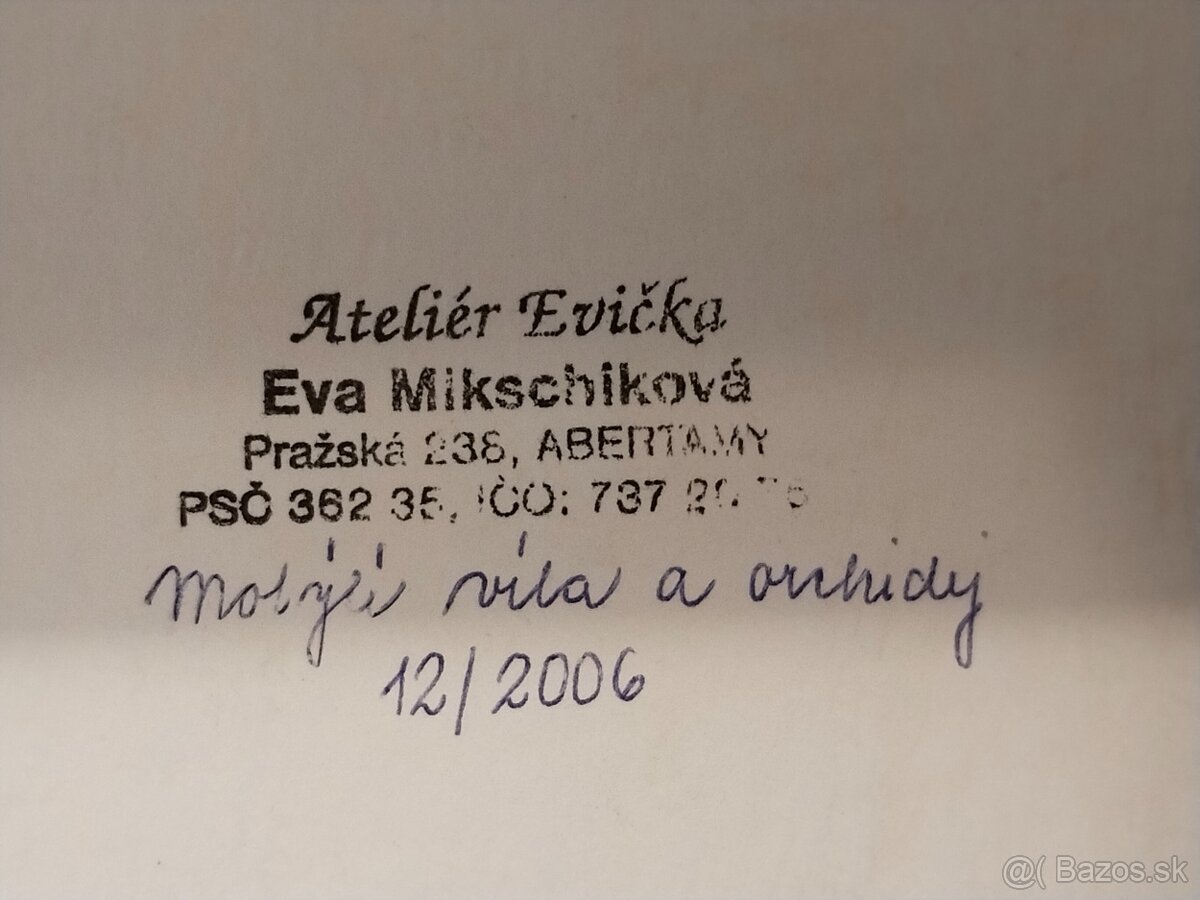 Ateliér Evička
Eva Mikschiková
Pražská 238, ABERTAMY
PSČ 362 35, IČO: 737
Motýlí víla a orchidy
12/2006
@( Bazos.sk